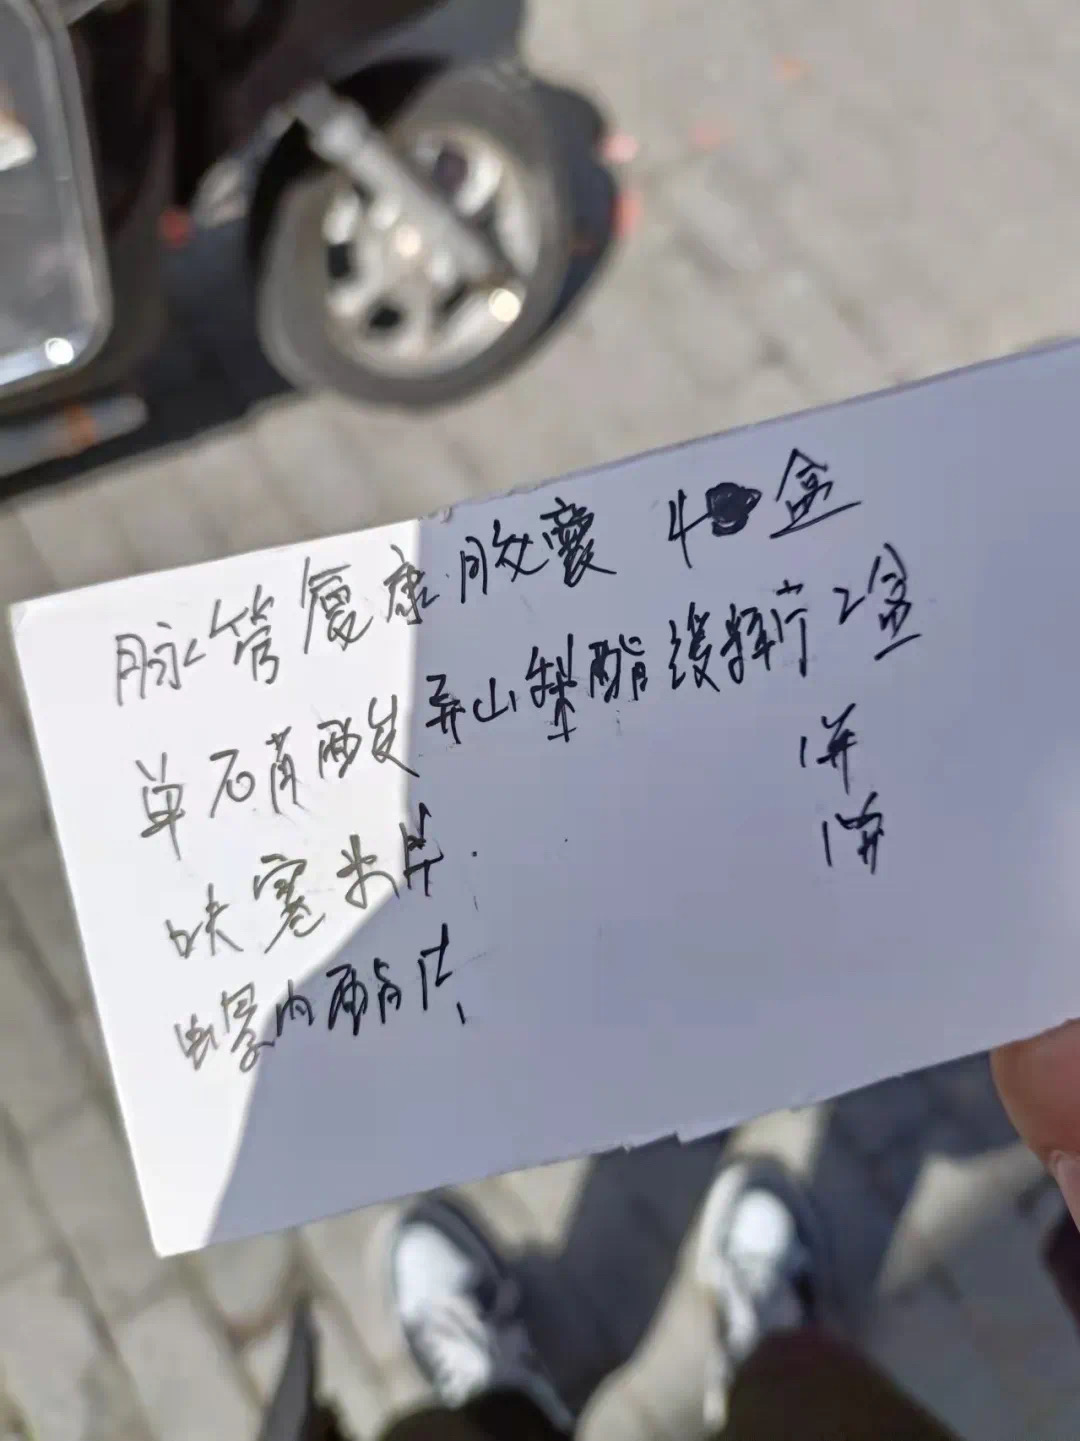 脉管復康胶囊 4盒
单硝酸异山梨酯缓释片 2盒
呋塞米片 1瓶
螺内酯片 1瓶